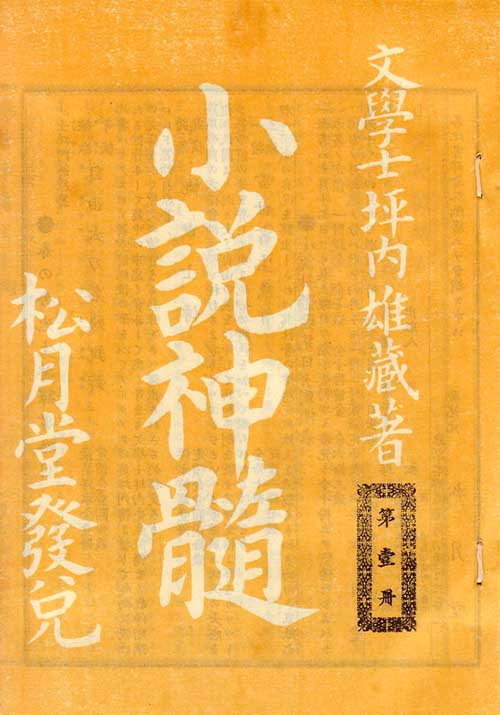 文學士坪内雄藏著
第壹冊
小説神髓
松月堂發兌